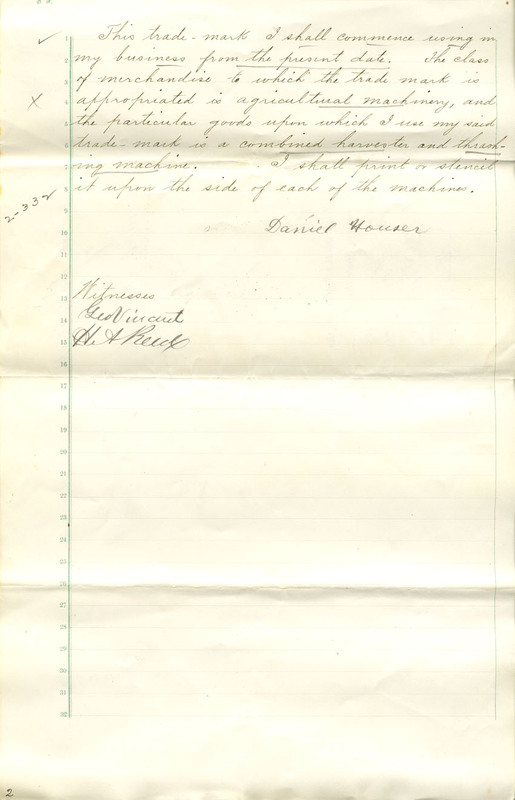 1 This trade-mark I shall commence using in
2 my business from the present date. The class
3 of merchandise to which the trade mark is
X 4 appropriated is agricultural machinery, and
5 the particular goods upon which I use my said
6 trade-mark is a combined harvester and thrash-
7 ing machine. I shall print or stencil
8 it upon the side of each of the machines.
2-332
9
10 Daniel Houser
11
12
13 Witnesses
14 Geo Vincent
15 H. A.
16
17
18
19
20
21
22
23
24
25
26
27
28
29
30
31
32
2